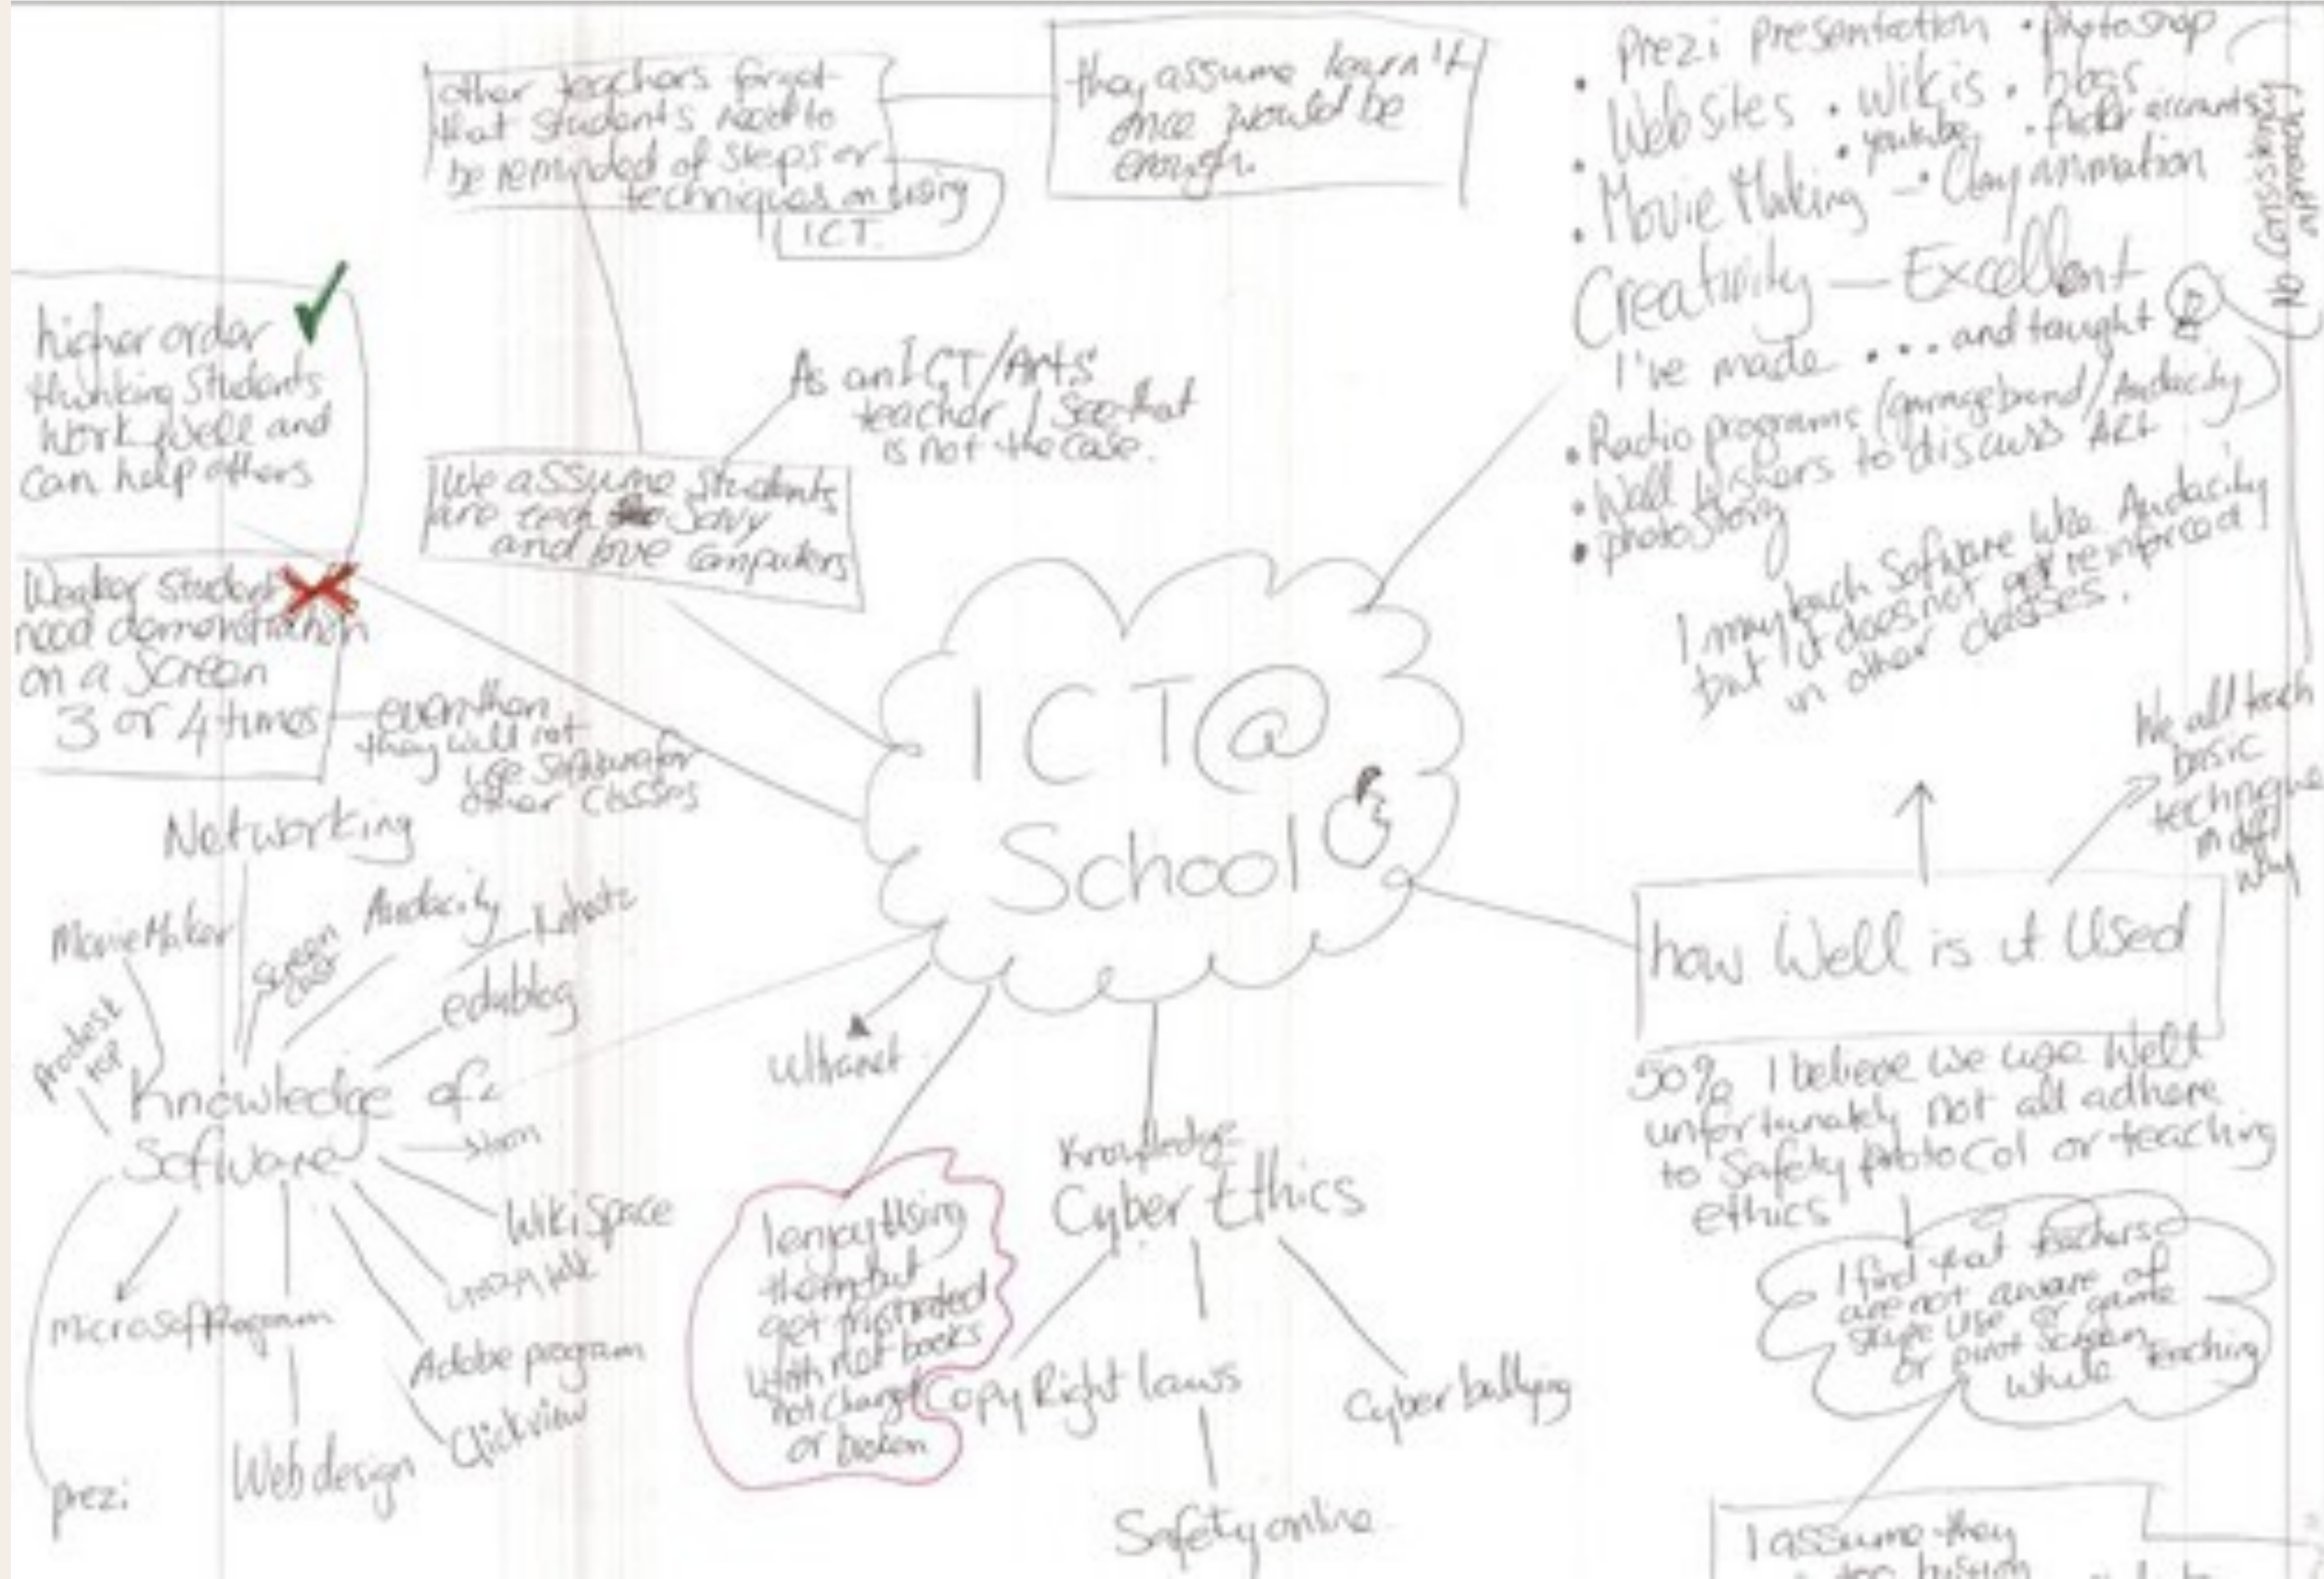 other teachers forget
that students need to
be reminded of steps or
techniques on using
ICT.
they assume learn it
once would be
enough.
prezi presentation • photoshop
• Web sites • Wikis • blogs
• youtube • flickr accounts
• Movie Making — • Clay animation
• Creativity — Excellent
I've made ... and taught
• Radio programs (garageband/Audacity)
• Well Wishers to discuss ART
• photostory
No Consistency
I may teach Software like Audacity
but it does not get reinforced
in other classes.
higher order
thinking students
work well and
can help others
As an ICT/Arts
teacher I see that
is not the case.
We assume students
are tech savy
and love computers
Weaker student
need demonstration
on a screen
3 or 4 times
even then
they will not
use software for
other classes
ICT@
School
We all teach
basic
technique
in diff
way
how Well is it Used
50% I believe we use Well
unfortunately not all adhere
to Safety protocol or teaching
ethics
I find that teachers
are not aware of
skype use or game
or pivot screen
while teaching
I assume they
Networking
MovieMaker
Audacity
edublog
Knowledge of
Software
WikiSpace
crazy talk
Microsoft Program
Adobe program
Clickview
Web design
prezi
Ultranet
I enjoy Using
them but
get frustrated
with not books
not charged
or broken
Knowledge
Cyber Ethics
Copy Right laws
Cyber bullying
Safety online